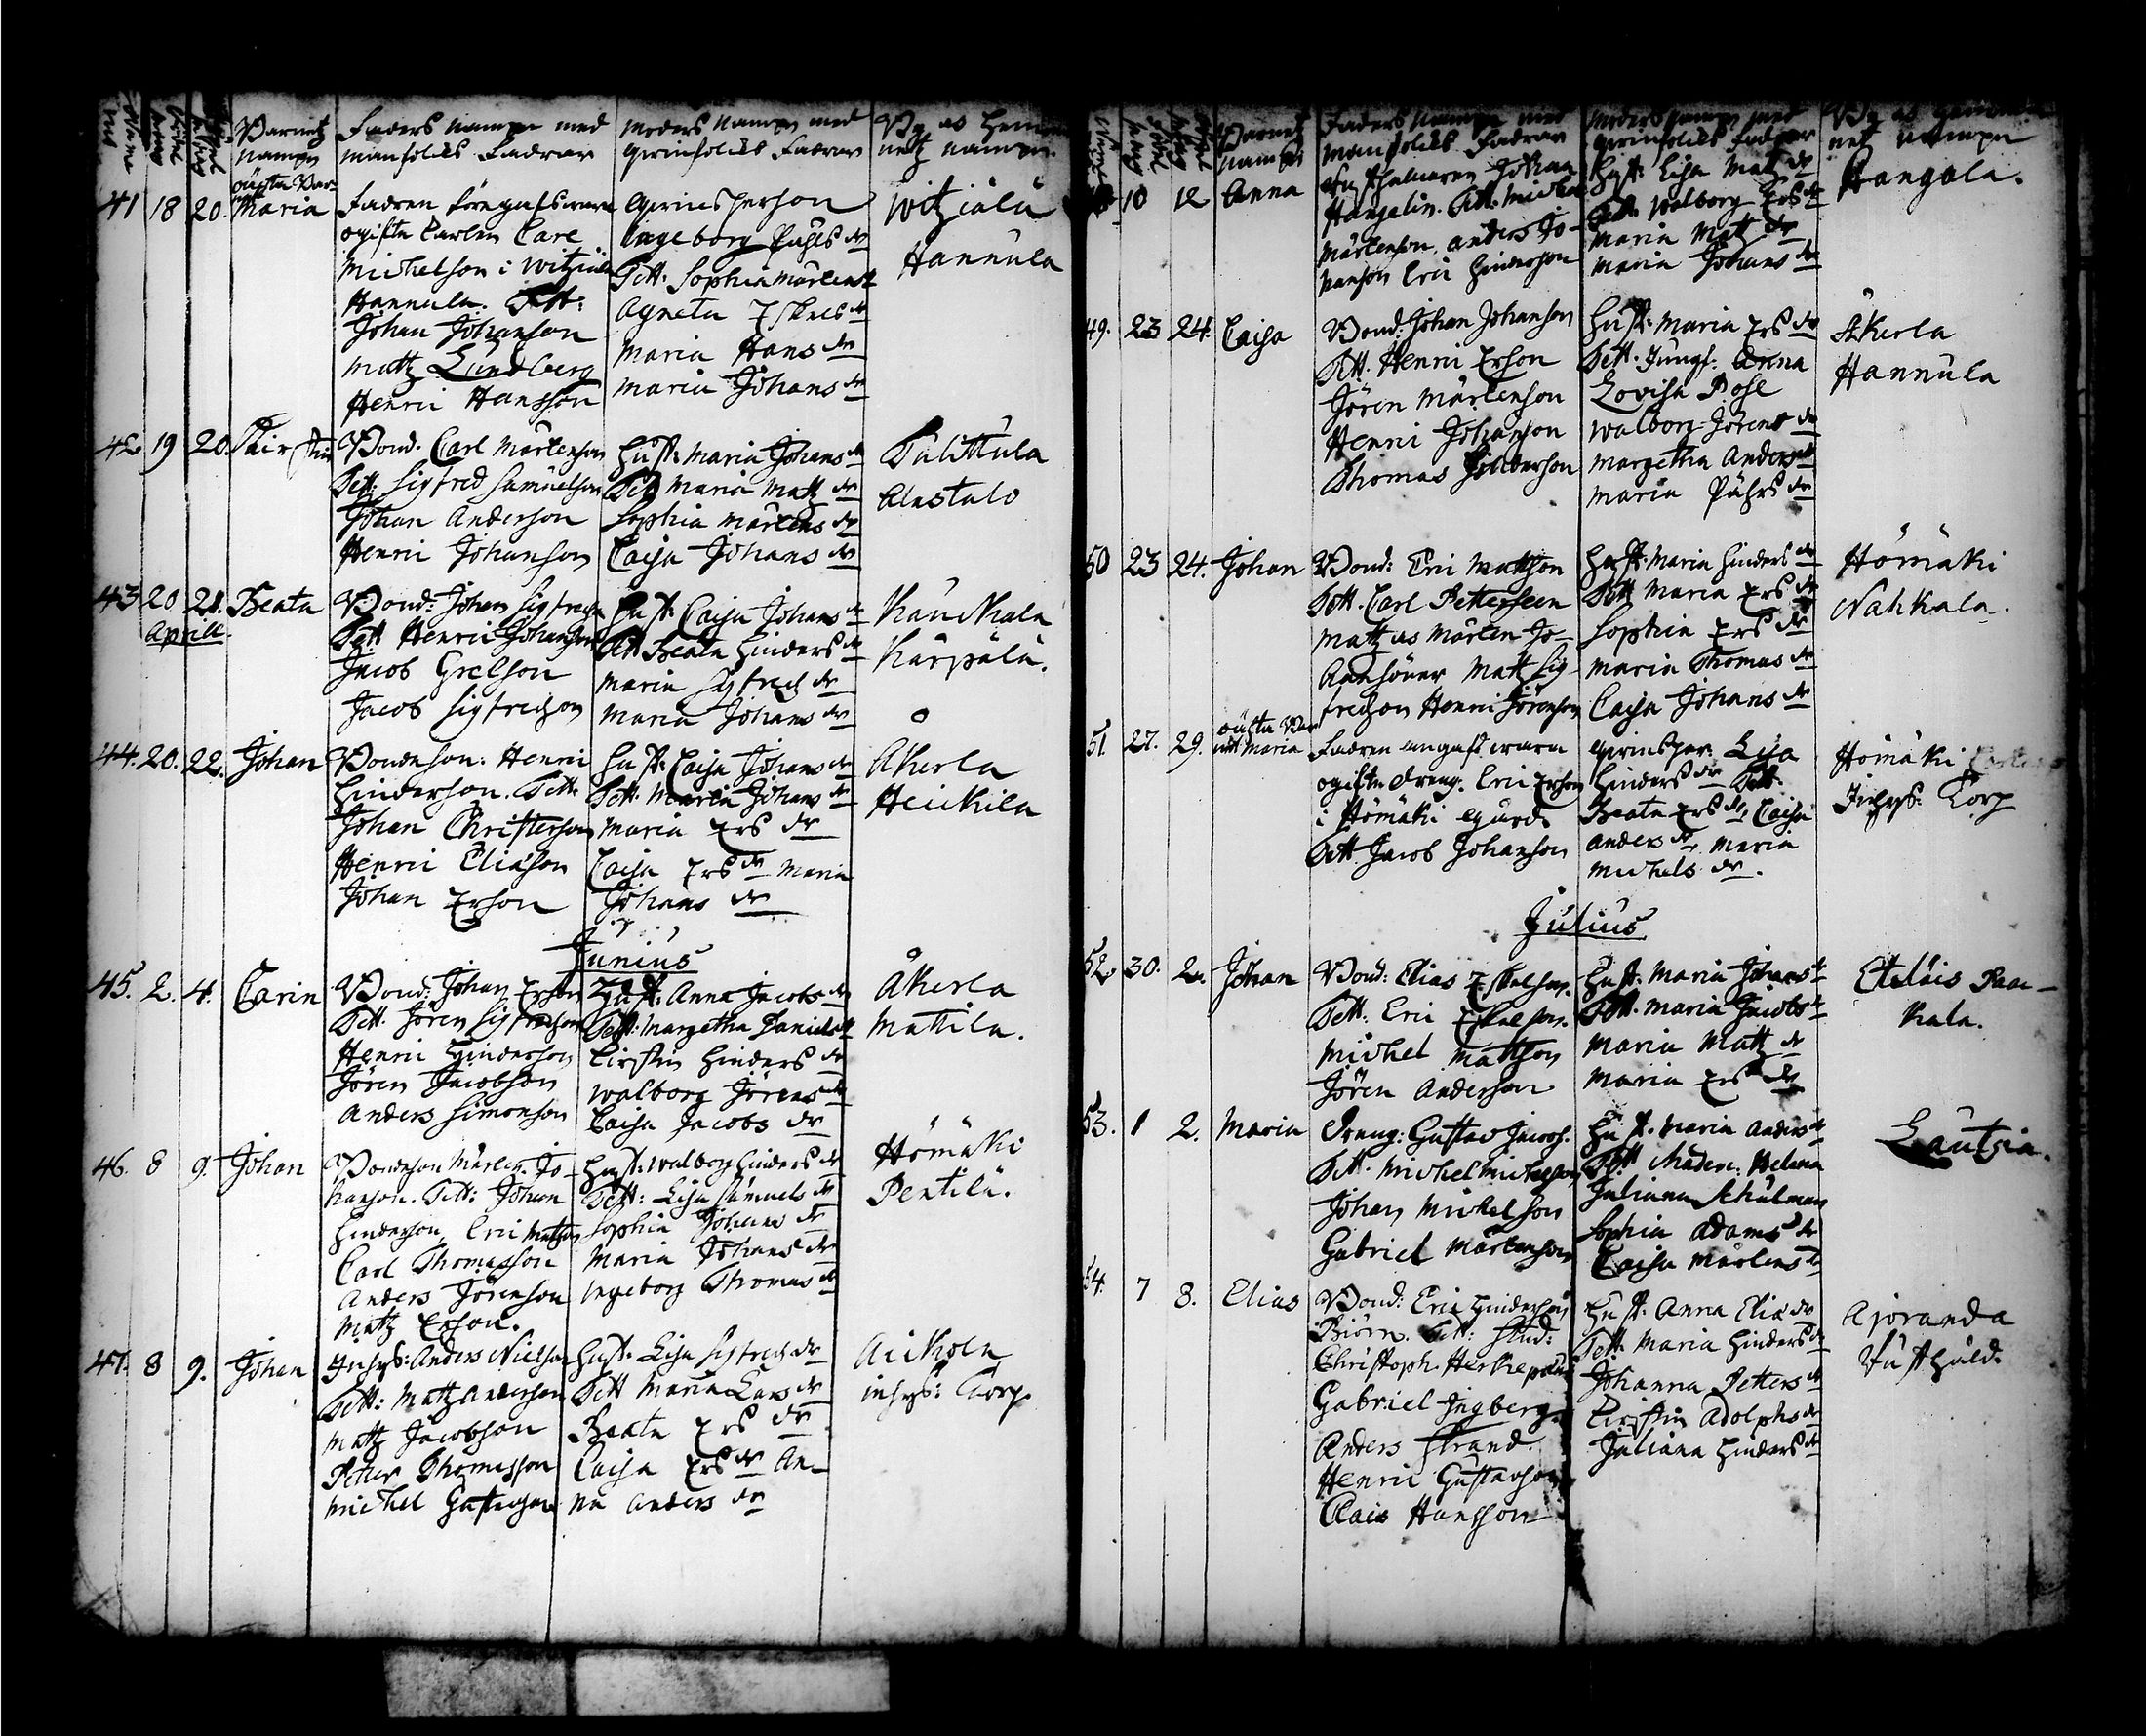 Barnetz nampn
Faders nampn med manfolcks Fadrar
Moders nampn med qwinfolcks Fadrar
By och hemma netz nampn
41 18 20. oächta Bar. Maria
Fadren föregafs wara
ogifta Karlen Carl
Michelson i Witziälä
Hannula. Test:
Johan Johanson
Matz Lundberg
Henric Hansson
Qwinsperson
Ingeborg Påhls dr
Test: Sophia Mårtens dr
Agneta Eskels dr
Maria Hans dr
Maria Johans dr
Witziälä
Hannula
42 19 20. Kirstin
Bond. Carl Mårtenson
Test: Sigfred Samuelson
Johan Anderson
Henric Johanson
Hust: Maria Johans dr
Test Maria Matz dr
Sophia Mårtens dr
Caisa Johans dr
Tulittula
Alastalo
43 20 21. Beata
Aprill.
Bond: Johan Sigfredson
Test Henric Johanson
Jacob Grelson
Jacob Sigfredson
Hust: Caisa Johans dr
Test Beata Hinders dr
Maria Sigfreds dr
Maria Johans dr
Kauckala
Karpala.
44. 20. 22. Johan
Bondeson: Henric
Hinderson. Test:
Johan Christerson
Henric Eliason
Johan Erson
Hust: Caisa Johans dr
Test: Maria Johans dr
Maria Ers dr
Caisa Ers dr Maria
Johans dr
Åkerla
Heickilä
Junius
45. 2. 4. Carin
Bond: Johan Erson
Test. Jören Sigfredson
Henric Hinderson
Jören Jacobson
Anders Simonson
Hust: Anna Jacobs dr
Test: Margetha Daniels dr
Cirstin Hinders dr
Walborg Jörens dr
Caisa Jacobs dr
Åkerla
Mattila.
46. 8 9. Johan
Bondeson Mårten Jo-
hanson. Test: Johan
Hinderson, Eric Matson
Carl Thomasson
Anders Jörenson
Matz Erson.
Hust: Walborg Hinders dr
Test: Lisa Samuels dr
Sophia Johans dr
Maria Johans dr
Ingeborg Thomas dr
Hömäki
Pentilä.
47. 8 9. Johan
Inhys: Anders Nielson
Test: Matz Anderson
Matz Jacobson
Petter Thomasson
Michel
Hust. Lisa Sigfreds dr
Test Maria Lars dr
Beata Ers dr
Caisa Ers dr An-
na Anders dr
Aickola
inhys: Torp.
Barnetz nampn
Faders nampn med manfolcks Fadrar
Moders nampn med qwinfolcks Fadrar
By och hemma net nampn
10 12 Anna
Johan
Hangelin. Test: Michel
Mårtenson, Anders Jo-
hanson Eric Hinderson
Hust: Lisa Matz dr
Test. Walborg Ers dr
Maria Matz dr
Maria Johans dr
Hangala.
49. 23 24. Caisa
Bond: Johan Johanson
Test. Henric Erson
Jören Mårtenson
Henric Johanson
Thomas Hinderson
Hust: Maria Ers dr
Test. Jungf: Anna
Lovisa Pohl
Walborg Jörens dr
Margetha Anders dr
Maria Påhls dr
Åkerla
Hannula
50 23 24. Johan
Bond: Eric Mattson
Test. Carl Petterseen
Matz as Mårten Jo-
hansöner Matt Sig-
fredzon Henric Jörenson
Hust: Maria Hinders dr
Test Maria Ers dr
Sophia Ers dr
Maria Thomas dr
Caisa Johans dr
Hömäki
Nahkala.
51. 27. 29. oächta Bar net Maria
Fadren angafs wara
ogifte dreng. Eric Erson
i Hömäki gård
Test Jacob Johanson
Qwinsper: Lisa
Hinders dr Test:
Beata Ers dr, Caisa
Anders dr, Maria
Michels dr.
Hömäki
Inhys: Torp
Julius
52 30. 2. Johan
Bond: Elias Eskelson.
Test: Eric Eskelson.
Michel Mattson
Jören Anderson
Hust: Maria Johans dr
Test. Maria Jacobs dr
Maria Matz dr
Maria Ers dr
Eteläis Paa-
kala.
53. 1 2. Maria
Dreng: Gustav Jacobs.
Test. Michel Michelson
Johan Mickelson
Gabriel Mårtenson
Hust. Maria Anders dr
Test Maden: Helena
Juliana Schulman
Sophia Adams dr
Caisa Mårtens dr
Lautsia.
54. 7 8. Elias
Bond: Eric Hinderson
Björn. Test: Stud:
Christoph. Herkepæus
Gabriel Ingberg
Anders Strand.
Henric Gustavson
Clais Hansson
Hust. Anna Elias dr
Test. Maria Hinders dr
Johanna Petters dr
Cirstin Adolphs dr
Juliana Hinders dr
Ajoranda
Rusthåld.